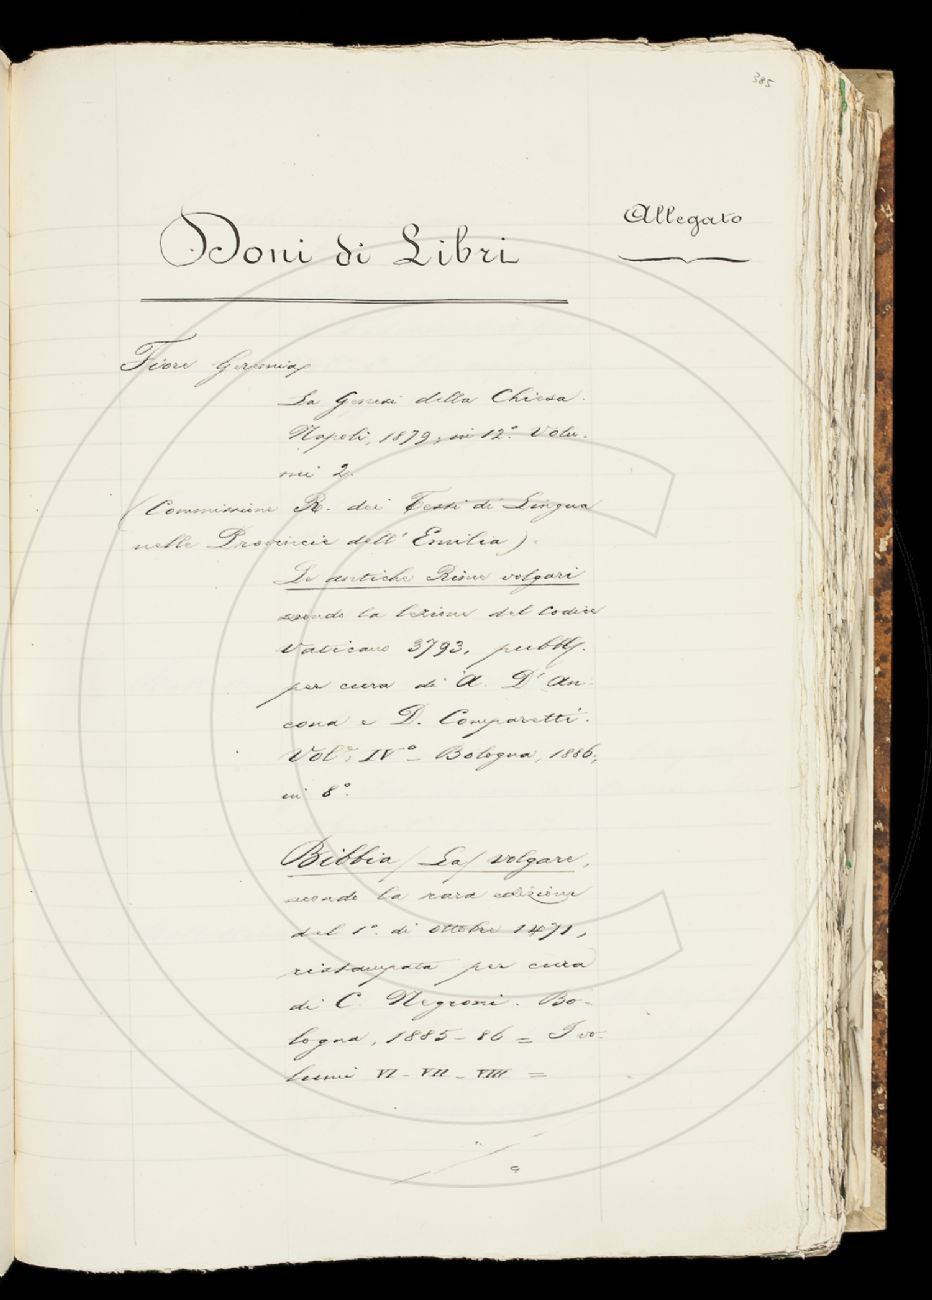 385
Allegato
Doni di Libri
Fiore Geremia
La Genesi della Chiesa.
Napoli, 1879, in 12.° Volu-
mi 2.
(Commissione R. dei Testi di Lingua
nelle Provincie dell'Emilia).
Le antiche Rime volgari
secondo la lezione del Codice
Vaticano 3793, pubbl.
per cura di A. D'An-
cona e D. Comparetti.
Vol.e IV° - Bologna, 1886,
in 8°.
Bibbia /La/ volgare,
secondo la rara edizione
del 1° di ottobre 1471,
ristampata per cura
di C. Negroni. Bo-
logna, 1885-86 = I vo-
lumi VI - VII - VIII =